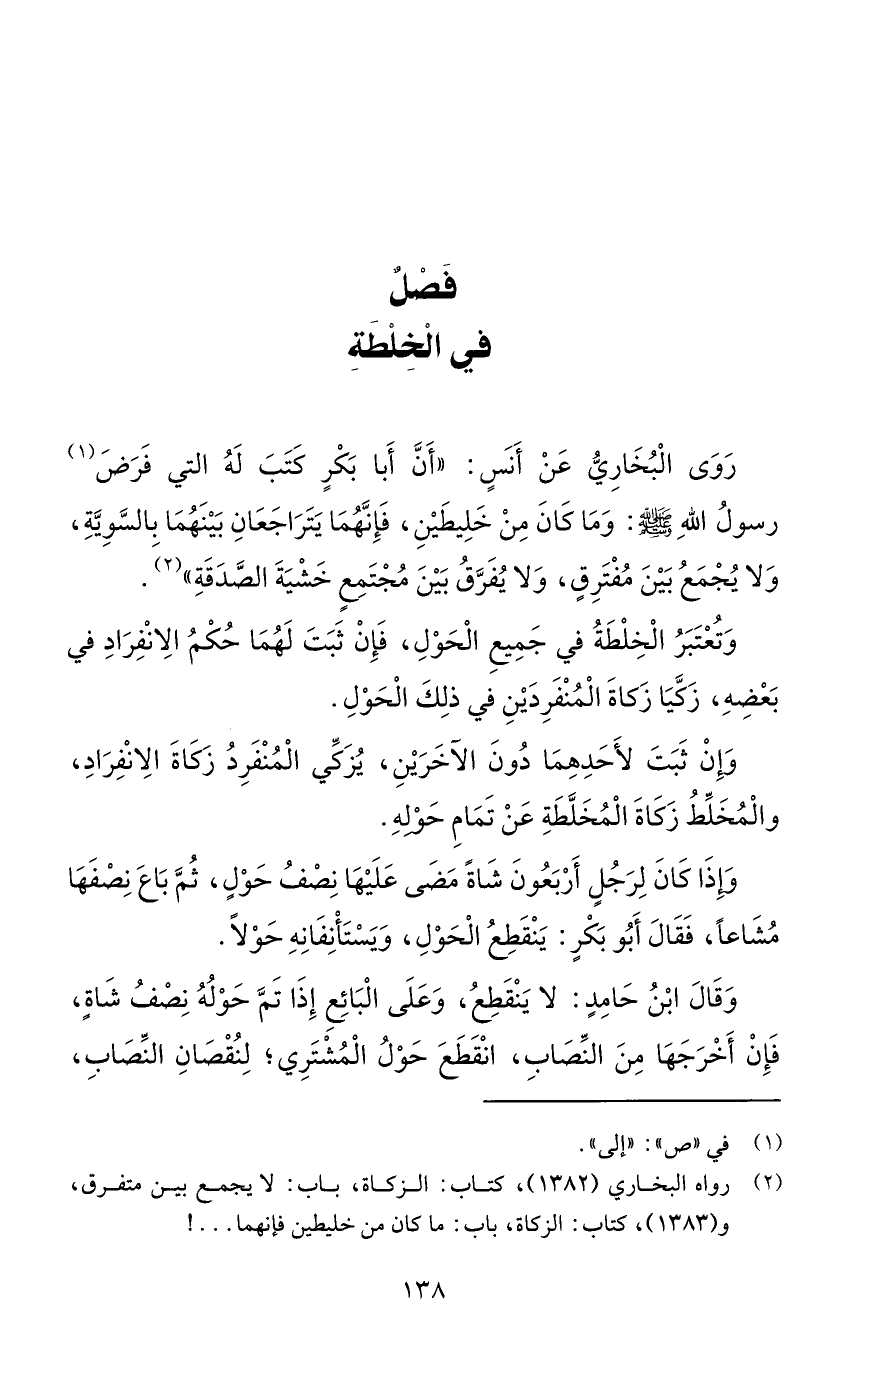 فَصْلٌ
في الْخِلْطَةِ
رَوَى الْبُخَارِيُّ عَنْ أَنَسٍ: «أَنَّ أَبا بَكْرٍ كَتَبَ لَهُ التي فَرَضَ(١)
رسولُ اللهِ ﷺ: وَمَا كَانَ مِنْ خَلِيطَيْنِ، فَإِنَّهُمَا يَتَرَاجَعَانِ بَيْنَهُمَا بِالسَّوِيَّةِ،
وَلا يُجْمَعُ بَيْنَ مُفْتَرِقٍ، وَلا يُفَرَّقُ بَيْنَ مُجْتَمِعٍ خَشْيَةَ الصَّدَقَةِ»(٢).
وَتُعْتَبَرُ الْخِلْطَةُ في جَمِيعِ الْحَوْلِ، فَإِنْ ثَبَتَ لَهُمَا حُكْمُ الِانْفِرَادِ في
بَعْضِهِ، زَكَّيَا زَكاةَ الْمُنْفَرِدَيْنِ في ذلِكَ الْحَوْلِ.
وَإِنْ ثَبَتَ لأَحَدِهِمَا دُونَ الآخَرَيْنِ، يُزَكِّي الْمُنْفَرِدُ زَكَاةَ الِانْفِرَادِ،
والْمُخَلِّطُ زَكَاةَ الْمُخَلَّطَةِ عَنْ تَمَامِ حَوْلِهِ.
وَإِذَا كَانَ لِرَجُلٍ أَرْبَعُونَ شَاةً مَضَى عَلَيْهَا نِصْفُ حَوْلٍ، ثُمَّ بَاعَ نِصْفَهَا
مُشَاعاً، فَقَالَ أَبُو بَكْرٍ: يَنْقَطِعُ الْحَوْلِ، وَيَسْتَأْنِفَانِهِ حَوْلاً.
وَقَالَ ابْنُ حَامِدٍ: لا يَنْقَطِعُ، وَعَلَى الْبَائِعِ إِذَا تَمَّ حَوْلُهُ نِصْفُ شَاةٍ،
فَإِنْ أَخْرَجَهَا مِنَ النِّصَابِ، انْقَطَعَ حَوْلُ الْمُشْتَرِي؛ لِنُقْصَانِ النِّصَابِ،
(١) في «ص»: «إلى».
(٢) رواه البخاري (١٣٨٢)، كتاب: الزكاة، باب: لا يجمع بين متفرق،
و(١٣٨٣)، كتاب: الزكاة، باب: ما كان من خليطين فإنهما...!
١٣٨